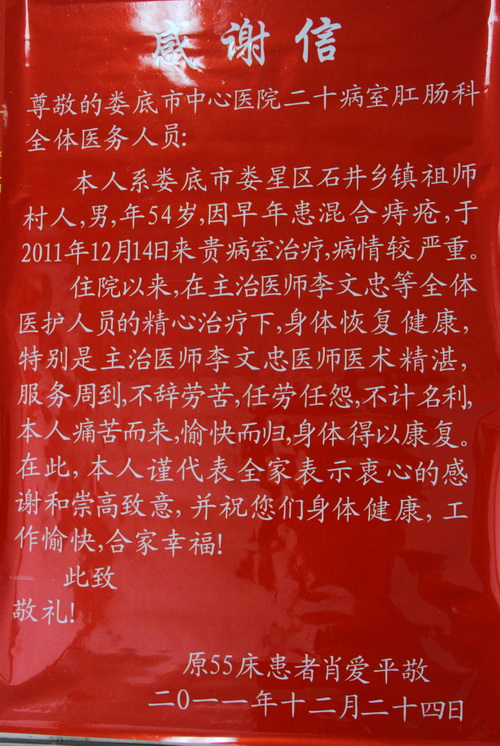 感谢信
尊敬的娄底市中心医院二十病室肛肠科
全体医务人员:
本人系娄底市娄星区石井乡镇祖师
村人,男,年54岁,因早年患混合痔疮,于
2011年12月14日来贵病室治疗,病情较严重。
住院以来,在主治医师李文忠等全体
医护人员的精心治疗下,身体恢复健康,
特别是主治医师李文忠医师医术精湛,
服务周到,不辞劳苦,任劳任怨,不计名利,
本人痛苦而来,愉快而归,身体得以康复。
在此,本人谨代表全家表示衷心的感
谢和崇高致意,并祝您们身体健康,工
作愉快,合家幸福!
此致
敬礼!
原55床患者肖爱平敬
二0一一年十二月二十四日